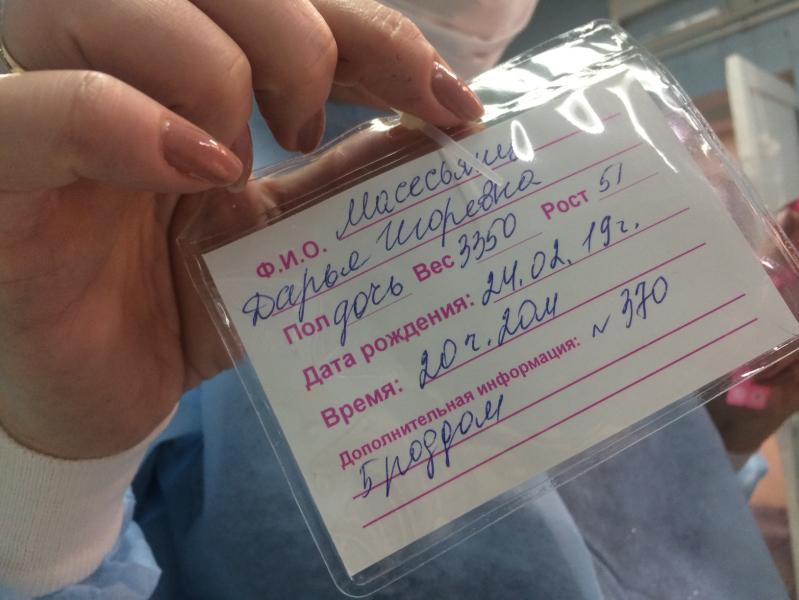 Ф.И.О.
Дарья Игоревна
Пол дочь Вес 3350 Рост 51
Дата рождения: 24.02.19г.
Время: 20ч.20м
Дополнительная информация: N 370
5 роддом